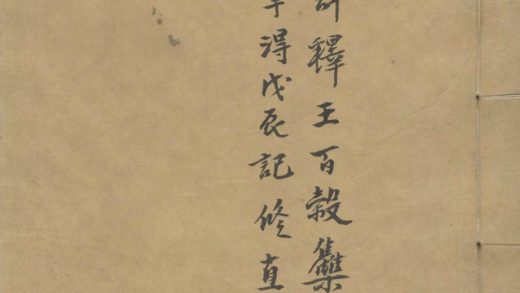 釋王百穀集
得戊辰記修直